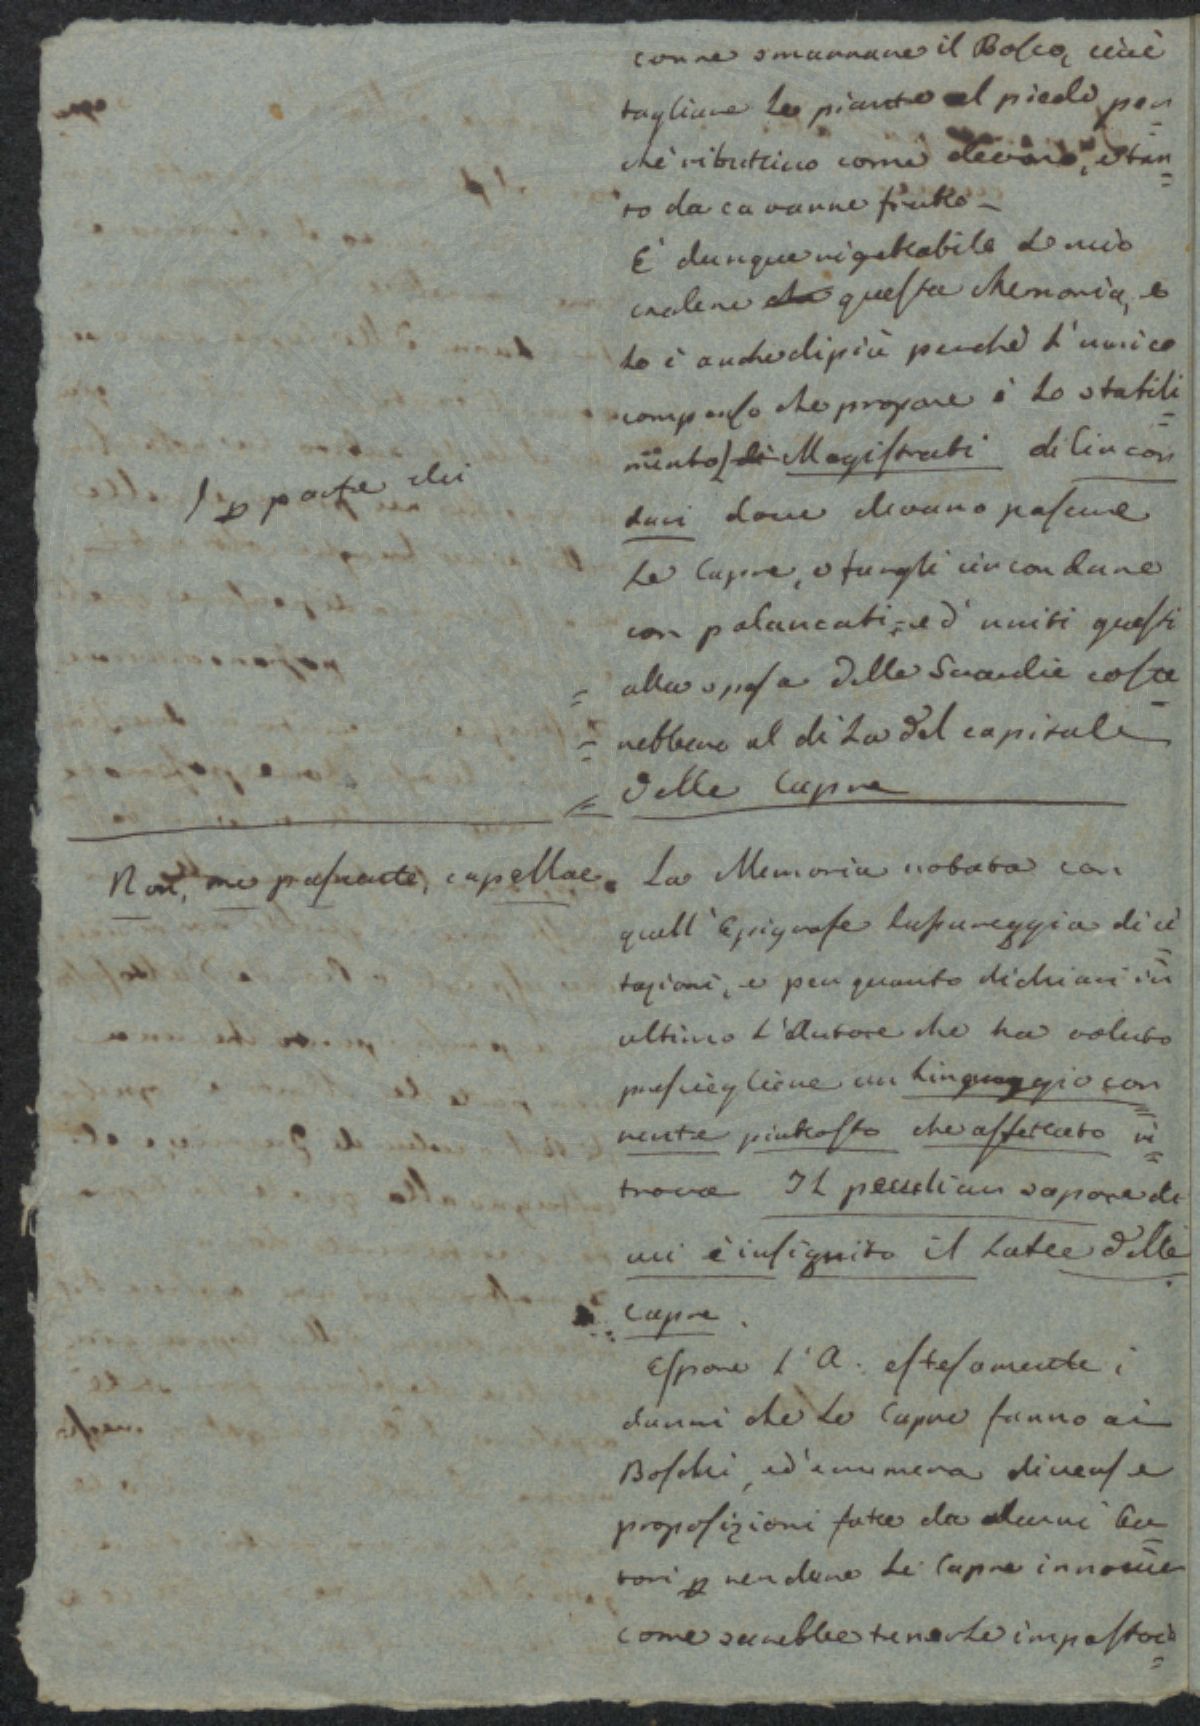 corre smarrare il Bosco, cioè
tagliare le piante al piede per=
chè ributtino come devono, e tan=
to da cavarne frutto –
È dunque rigettabile a mio
credere questa Memoria, e
lo è anche di più perchè l'unico
compenso che propone è lo stabili=
mento di Magistrati di Circon
/ p parte dei
dari dove devano pascere
le Capre, o fargli circondare
con palancati, ed' uniti questi
alla spesa delle Guardie coste=
rebbero al di là del capitale
delle Capre
Non, me pascente, capellae.
La Memoria notata con
quest' Epigrafe lussureggia di ci=
tazioni, e per quanto dichiari in
ultimo l'Autore che ha voluto
presciegliere un linguaggio cor=
rente piuttosto che affettato ri=
trova Il peculiar sapore di
cui è insignito il Latte delle
Capre.
Espone l'A. estesamente i
danni che le Capre fanno ai
Boschi, ed' enumera diverse
proposizioni fatte da alcuni Au=
tori p rendere le Capre innocue
come sarebbe tenerle impastoia=